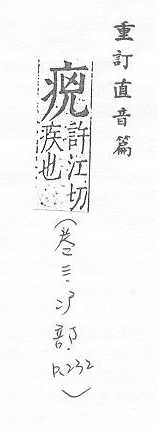 重訂直音篇
許江切
疾也
（卷三.疒部.P.232）